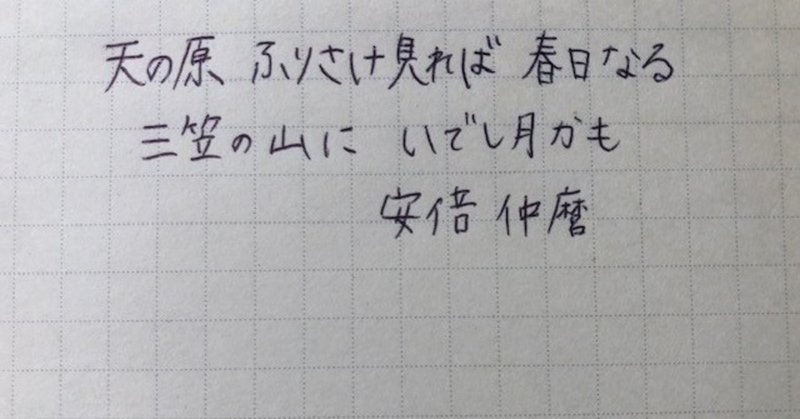 天の原 ふりさけ見れば 春日なる
三笠の山に いでし月かも
安倍 仲麿